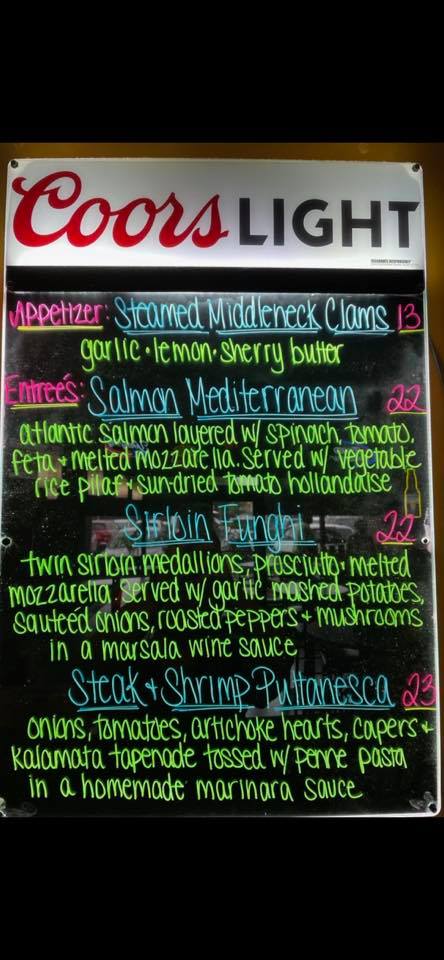 Coors LIGHT
Appetizer: Steamed Middleneck Clams 13
garlic • lemon • sherry butter
Entreés: Salmon Mediterranean 22
atlantic salmon layered w/ spinach, tomato,
feta + melted mozzarella. Served w/ vegetable
rice pilaf + sun-dried tomato hollandaise
Sirloin Funghi 22
twin sirloin medallions, prosciutto + melted
mozzarella. Served w/ garlic mashed potatoes,
sauteéd onions, roasted peppers + mushrooms
in a marsala wine sauce
Steak + Shrimp Puttanesca 23
onions, tomatoes, artichoke hearts, capers +
kalamata tapenade tossed w/ penne pasta
in a homemade marinara sauce